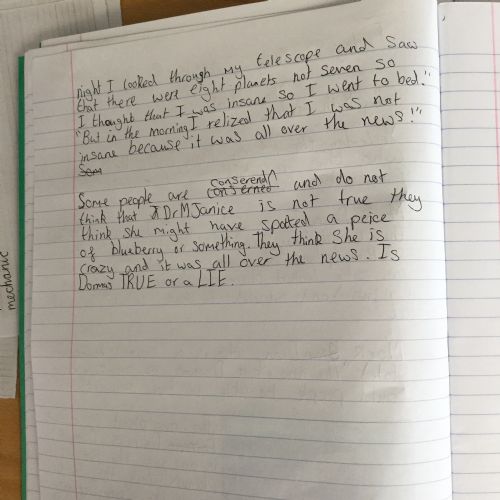 night I looked through my telescope and saw
that there were eight planets not seven so
I thought that I was insane so I went to bed."
"But in the morning I relized that I was not
insane because it was all over the news!"
Som
conserend
Some people are conserned and do not
think that DrMJanice is not true they
think she might have spotted a peice
of blueberry or something. They think She is
crazy and it was all over the news. Is
Domus TRUE or a LIE.
mechanic